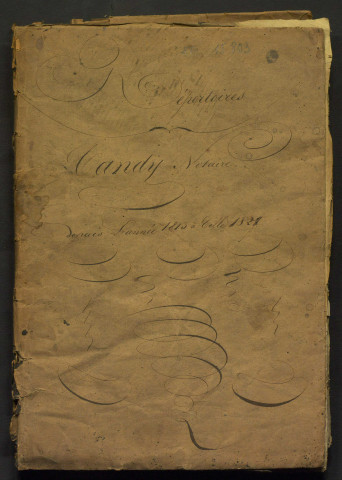 Répertoires
Candy Notaire
depuis L'année 1813 à Celle 1828